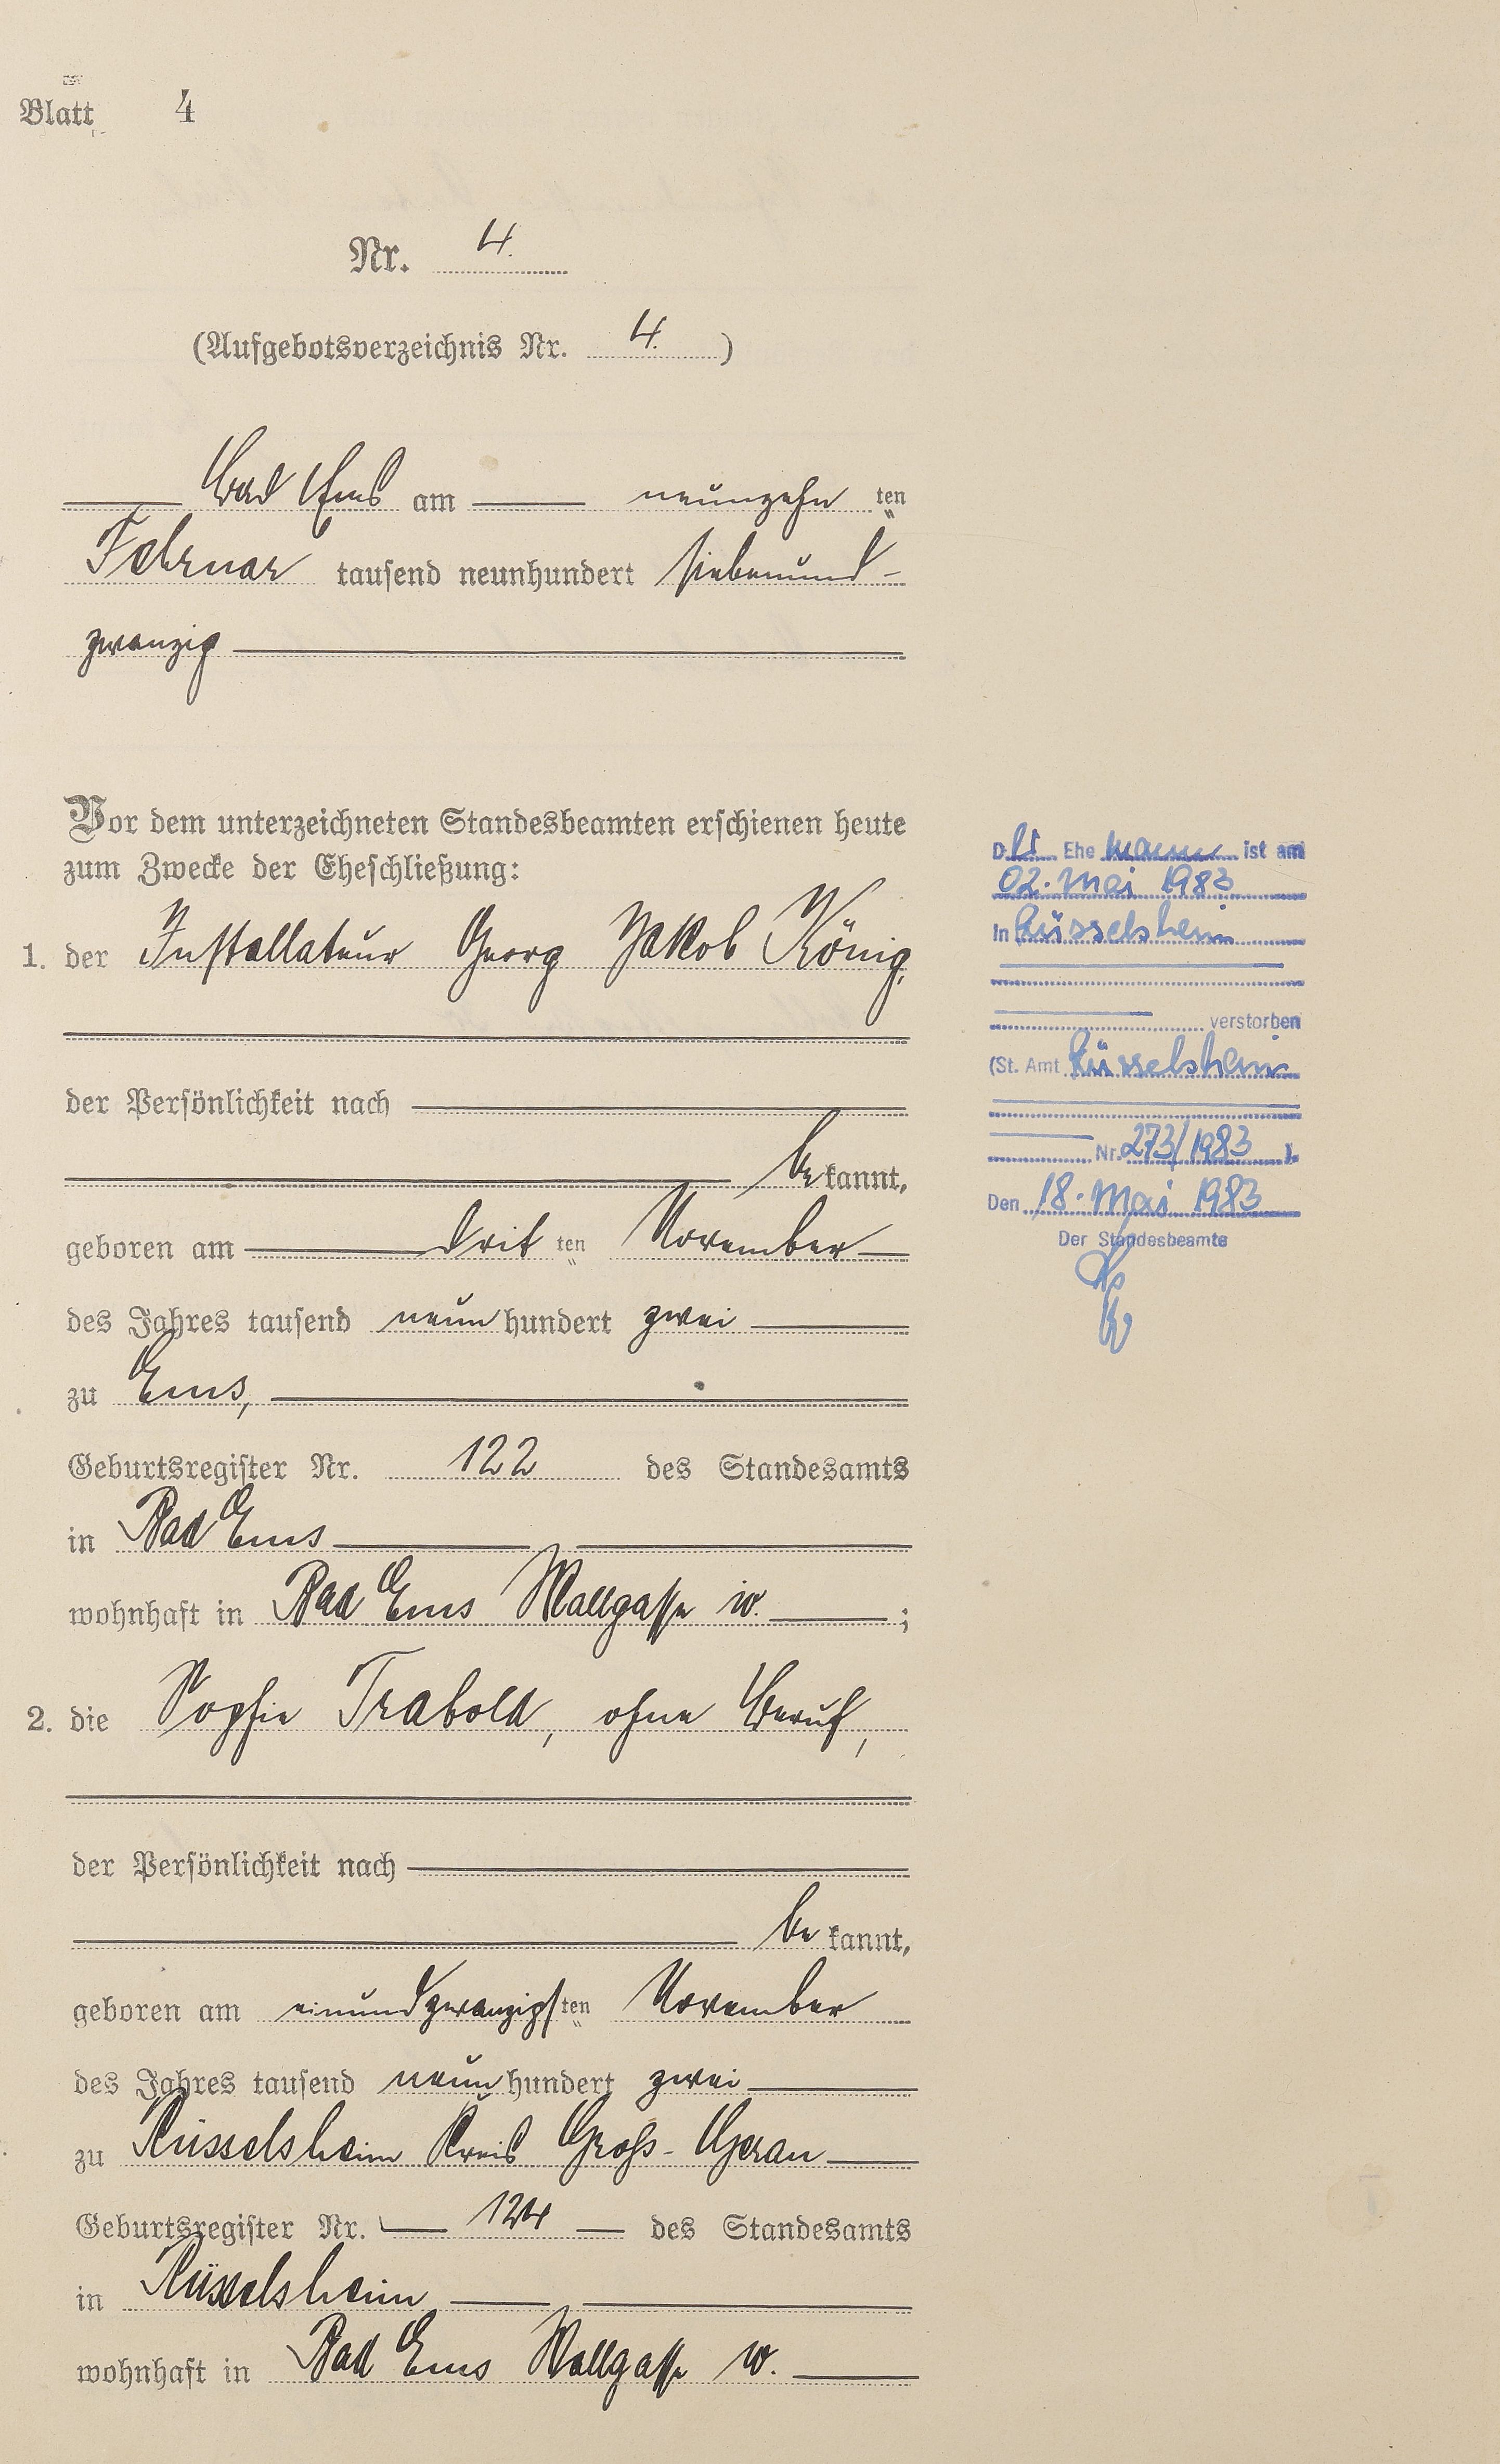 Blatt 4
Nr. 4.
(Aufgebotsverzeichnis Nr. 4.)
Bad Ems am neunzehn ten
Februar tausend neunhundert siebenund-
zwanzig
Vor dem unterzeichneten Standesbeamten erschienen heute
zum Zwecke der Eheschließung:
1. der Installateur Georg Jakob König,
der Persönlichkeit nach
be kannt,
geboren am drit ten November
des Jahres tausend neun hundert zwei
zu Ems,
Geburtsregister Nr. 122 des Standesamts
in Bad Ems
wohnhaft in Bad Ems Wallgasse ;
2. die Sophie Trabold, ohne Beruf,
der Persönlichkeit nach
be kannt,
geboren am einundzwanzigs ten November
des Jahres tausend neun hundert zwei
zu Rüsselsheim Kreis Groß-Gerau
Geburtsregister Nr. 124 des Standesamts
in Rüsselsheim
wohnhaft in Bad Ems Wallgasse
Der Ehemann ist am
02. Mai 1983
in Rüsselsheim
verstorben
(St. Amt Rüsselsheim
Nr. 273/1983 ).
Den 18. Mai 1983
Der Standesbeamte